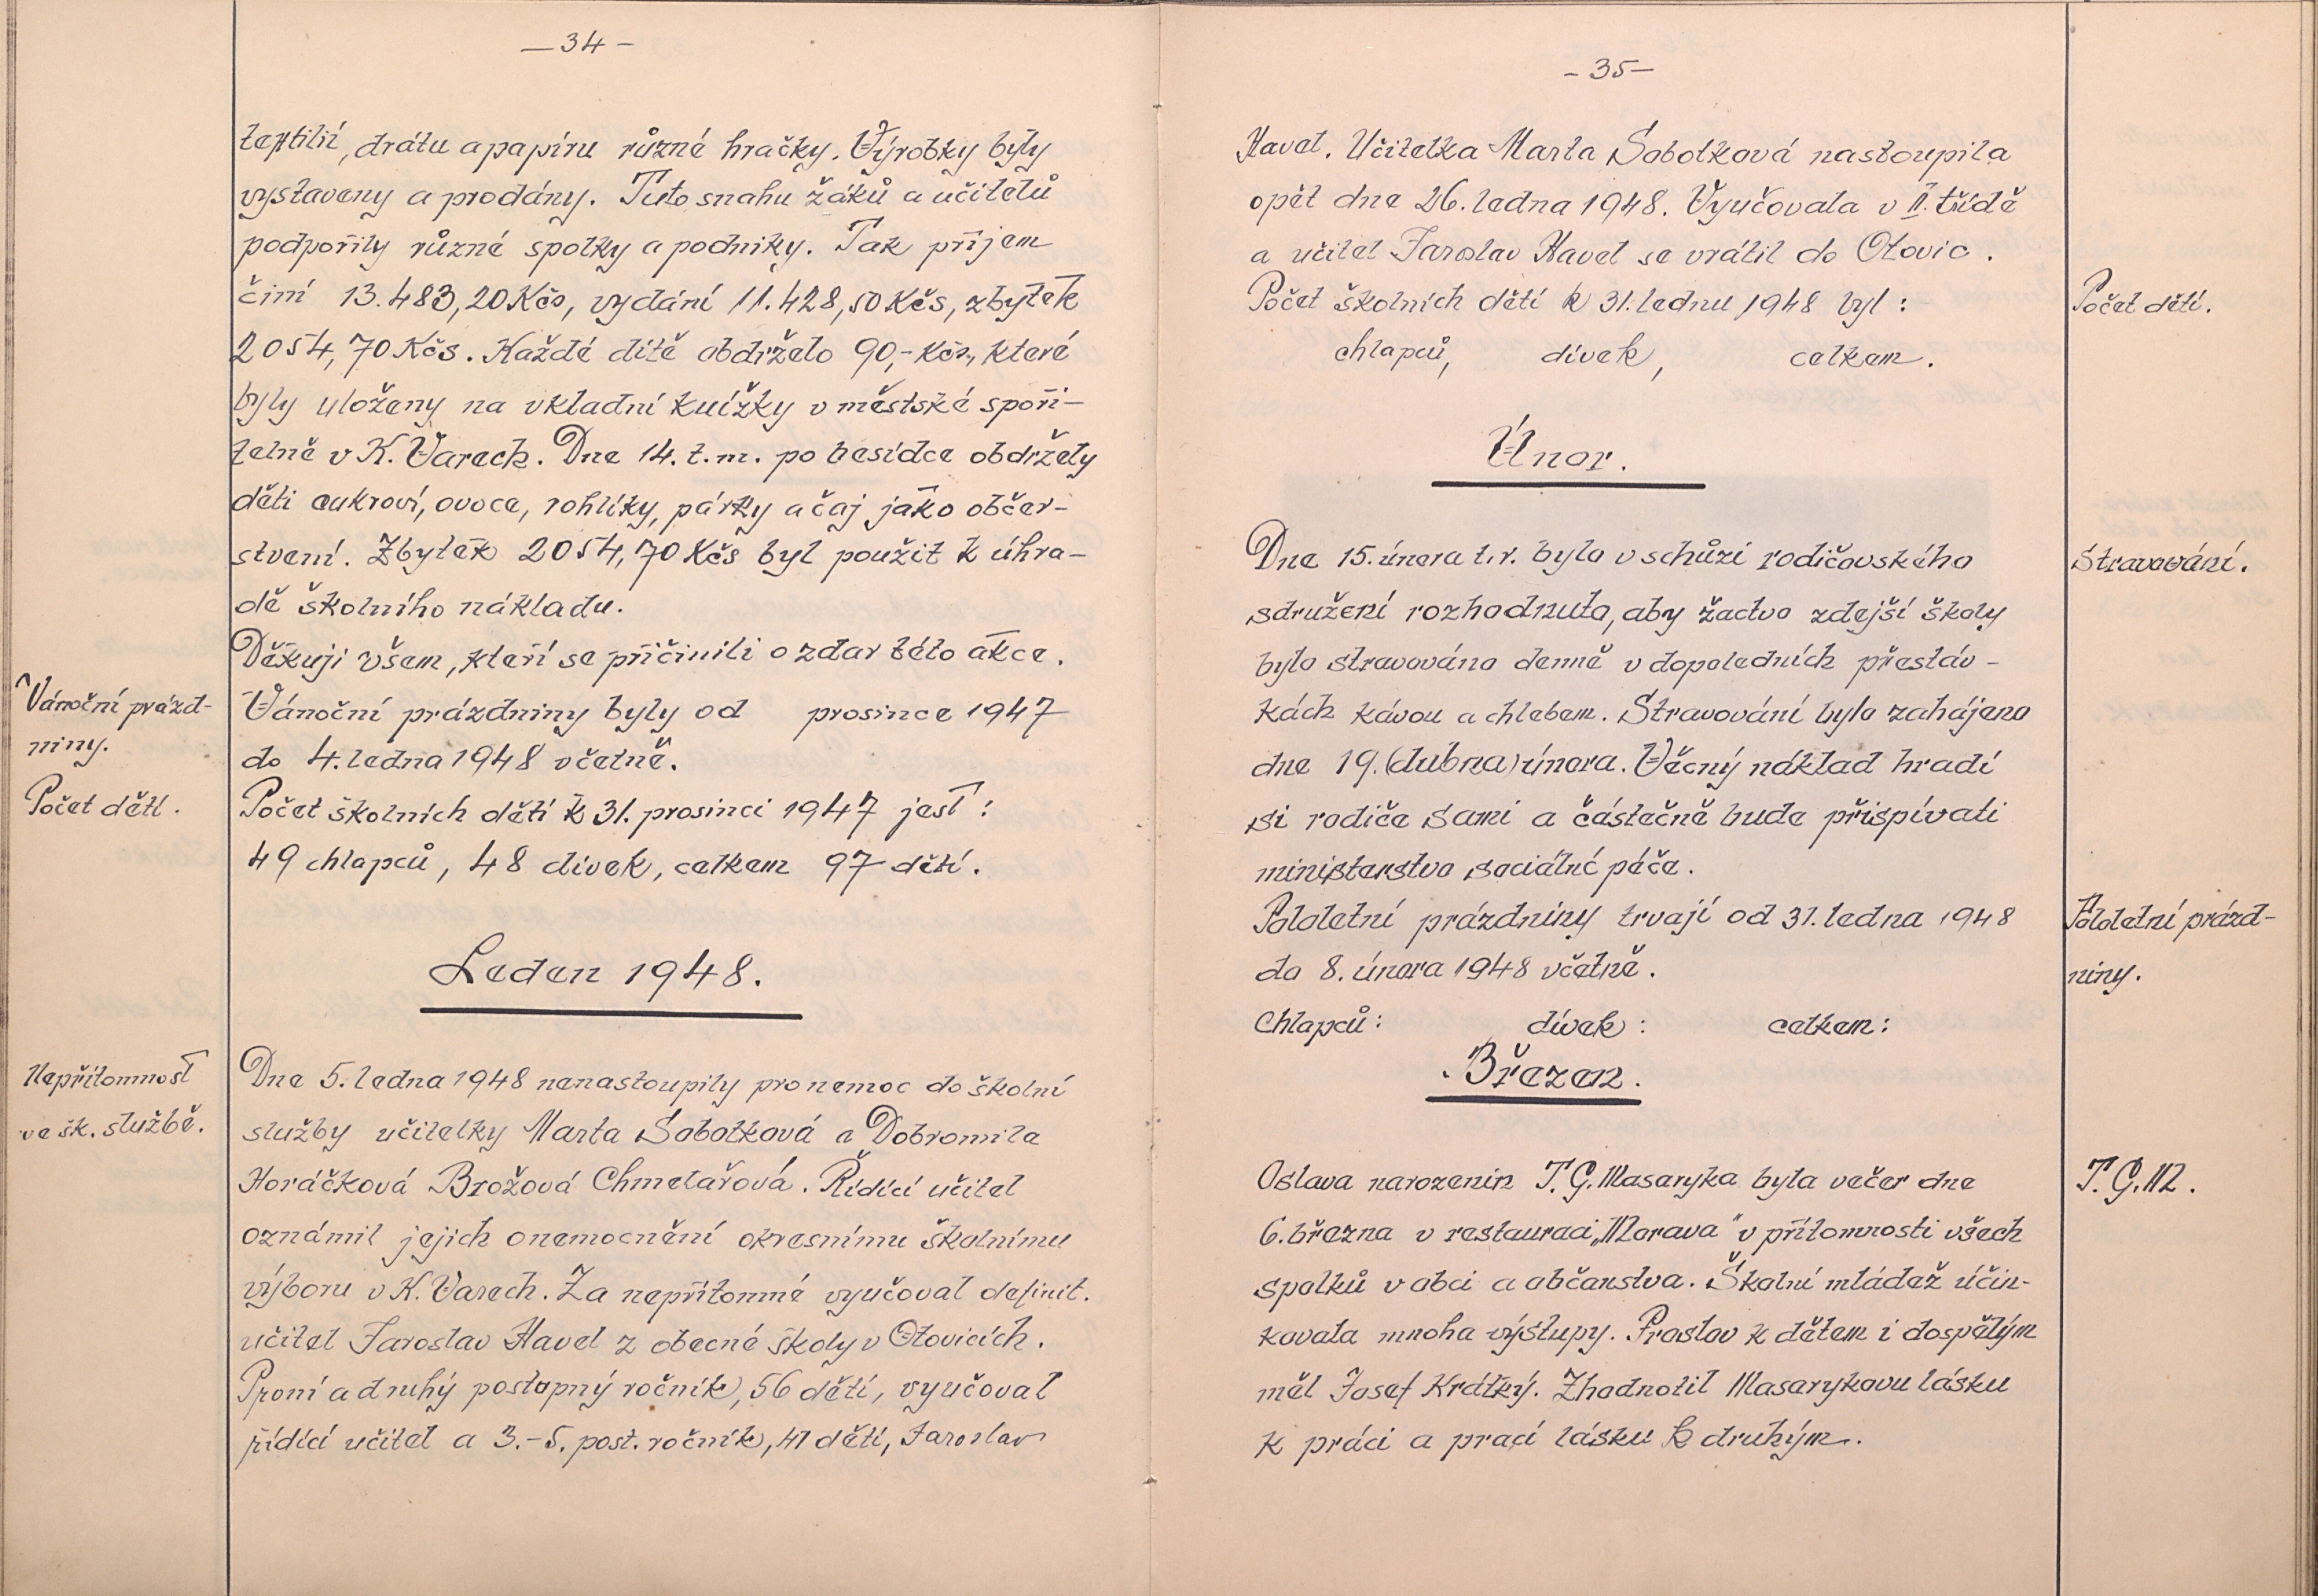 — 34 —
textilií, drátu a papíru různé hračky. Výrobky byly
vystaveny a prodány. Tuto snahu žáků a učitelů
podpořily různé spolky a podniky. Tak příjem
činí 13.483,20 Kčs, vydání 11.428,50 Kčs, zbytek
2054,70 Kčs. Každé dítě obdrželo 90,- Kčs, které
byly uloženy na vkladní knížky v městské spoři-
telně v K. Varech. Dne 14. t. m. po besídce obdržely
děti cukroví, ovoce, rohlíky, párky a čaj jako občer-
stvení. Zbytek 2054,70 Kčs byl použit k úhra-
dě školního nákladu.
Děkuji všem, kteří se přičinili o zdar této akce.
Vánoční prázd-
niny.
Vánoční prázdniny byly od prosince 1947
do 4. ledna 1948 včetně.
Počet dětí.
Počet školních dětí k 31. prosinci 1947 jest:
49 chlapců, 48 dívek, celkem 97 dětí.
Leden 1948.
Nepřítomnost
ve šk. službě.
Dne 5. ledna 1948 nenastoupily pro nemoc do školní
služby učitelky Marta Sobotková a Dobromila
Horáčková Brožová Chmelařová. Řídící učitel
oznámil jejich onemocnění okresnímu školnímu
výboru v K. Varech. Za nepřítomné vyučoval definit.
učitel Jaroslav Havel z obecné školy v Otovicích.
První a druhý postupný ročník, 56 dětí, vyučoval
řídící učitel a 3.-5. post. ročník, 41 dětí, Jaroslav
- 35 —
Havel. Učitelka Marta Sobotková nastoupila
opět dne 26. ledna 1948. Vyučovala v II. třídě
a učitel Jaroslav Havel se vrátil do Otovic.
Počet školních dětí k 31. lednu 1948 byl:
Počet dětí.
chlapců, dívek, celkem.
Únor.
Dne 15. února t. r. bylo v schůzi rodičovského
Stravování.
sdružení rozhodnuto, aby žactvo zdejší školy
bylo stravováno denně v dopoledních přestáv-
kách kávou a chlebem. Stravování bylo zahájeno
dne 19. (dubna) února. Věcný náklad hradí
si rodiče sami a částečně bude přispívati
ministerstvo sociální péče.
Pololetní prázdniny trvají od 31. ledna 1948
do 8. února 1948 včetně.
Pololetní prázd-
niny.
Chlapců: dívek: celkem:
Březen.
Oslava narozenin T. G. Masaryka byla večer dne
T. G. M.
6. března v restauraci „Morava" v přítomnosti všech
spolků v obci a občanstva. Školní mládež účin-
kovala mnoha výstupy. Proslov k dětem i dospělým
měl Josef Krátký. Zhodnotil Masarykovu lásku
k práci a prací lásku k druhým.